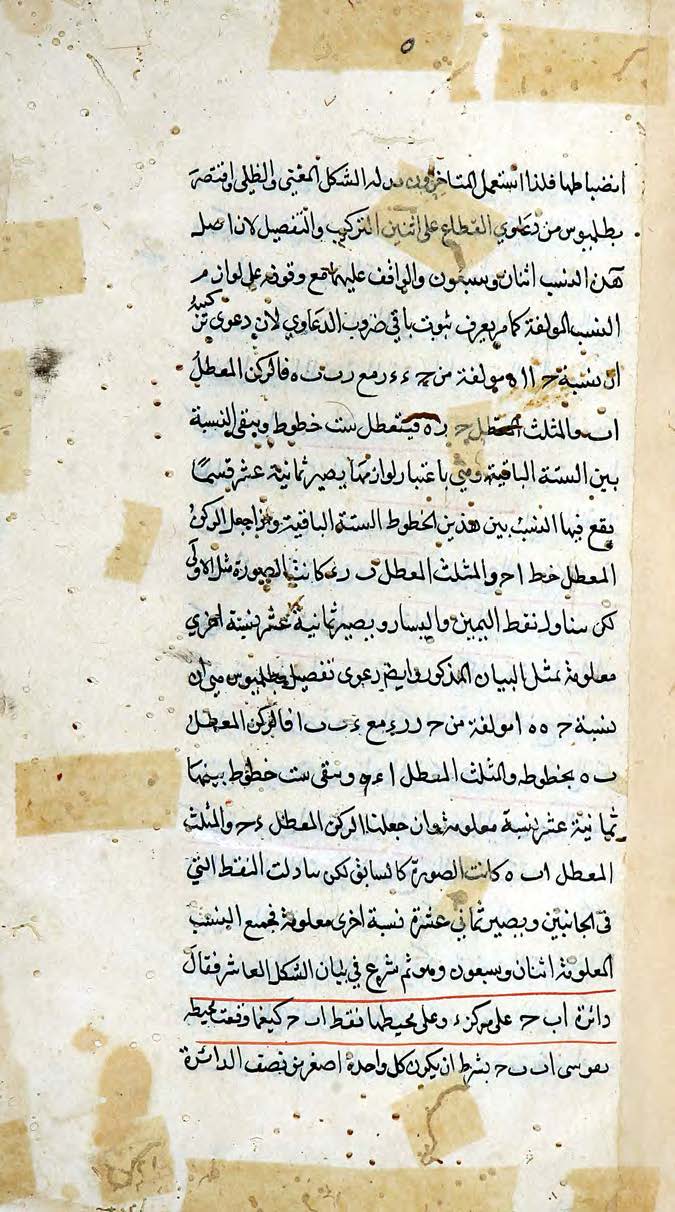 انضباطها فلذا استعمل المتاخرون بدله الشكل المغني والظلي واقتصر
بطلميوس من دعاوي القطاع على اثنين التركيب والتفصيل لان اصل
هذه النسب اثنان وسبعون والواقف عليها مع وقوفه على لوازم
النسب المولفة كما مر يعرف ثبوت باقي ضروب الدعاوي لان دعوى تركيبه
ان نسبة ح ا ا ه مولفة من ح ء ء ر مع ر ب ب ه فالركن المعطل
ا ب والمثلث المعطل ح ب ه فيتعطل ست خطوط ويبقى النسبة
بين الستة الباقية وهي باعتبار لوازمها يصير ثمانية عشر قسمًا
يقع فيها النسب بين هذين الخطوط الستة الباقية وان اجعل الركن
المعطل خط ا ح والمثلث المعطل ب ر ء كانت الصورة مثل الاولى
لكن يتناول نقط اليمين واليسار ويصير ثمانية عشر نسبة اخري
معلومة بمثل البيان المذكور وايضا دعوى تفصيل بطلميوس هي ان
نسبة ح ه ه ا مولفة من ح ر ر ء مع ء ب ب ا فالركن المعطل
ب ه بخطوطه والمثلث المعطل ا ء ه ويبقى ست خطوط بينهما
ثمانية عشر نسبة معلومة وان جعلنا الركن المعطل ء ح والمثلث
المعطل ا ب ه كانت الصورة كالسابق لكن تبادلت النقط التي
في الجانبين ويصير ثماني عشرة نسبة اخرى معلومة فجميع النسب
المعلومة اثنان وسبعون وهو ثم شرع في بيان الشكل العاشر فقال
دائرة ا ب ح على مركز ء وعلى محيطها نقط ا ب ح كيفما وقعت محيطه
بقوسى ا ب ب ح بشرط ان يكون كل واحدة اصغر من نصف الدائرة